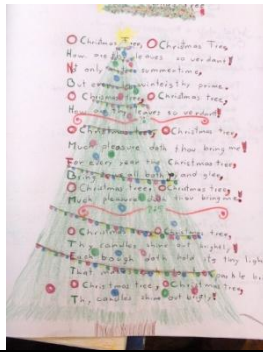 O Christmas Tree, O Christmas Tree,
How are leaves so verdant!
Not only summertime,
But even winter is thy prime.
O Christmas tree, O Christmas tree,
How are leaves so verdant!
O Christmas tree, O Christmas tree,
Much pleasure doth thou bring me!
For every year the Christmas tree,
Brings to all both and glee,
O Christmas tree, O Christmas tree,
Much pleasure doth thou bring me!
O Christmas tree, O Christmas tree,
Thy candles shine out brightly!
Each bough doth hold its tiny light,
That makes
O Christmas tree, O Christmas tree,
Thy candles shine out brigtly!